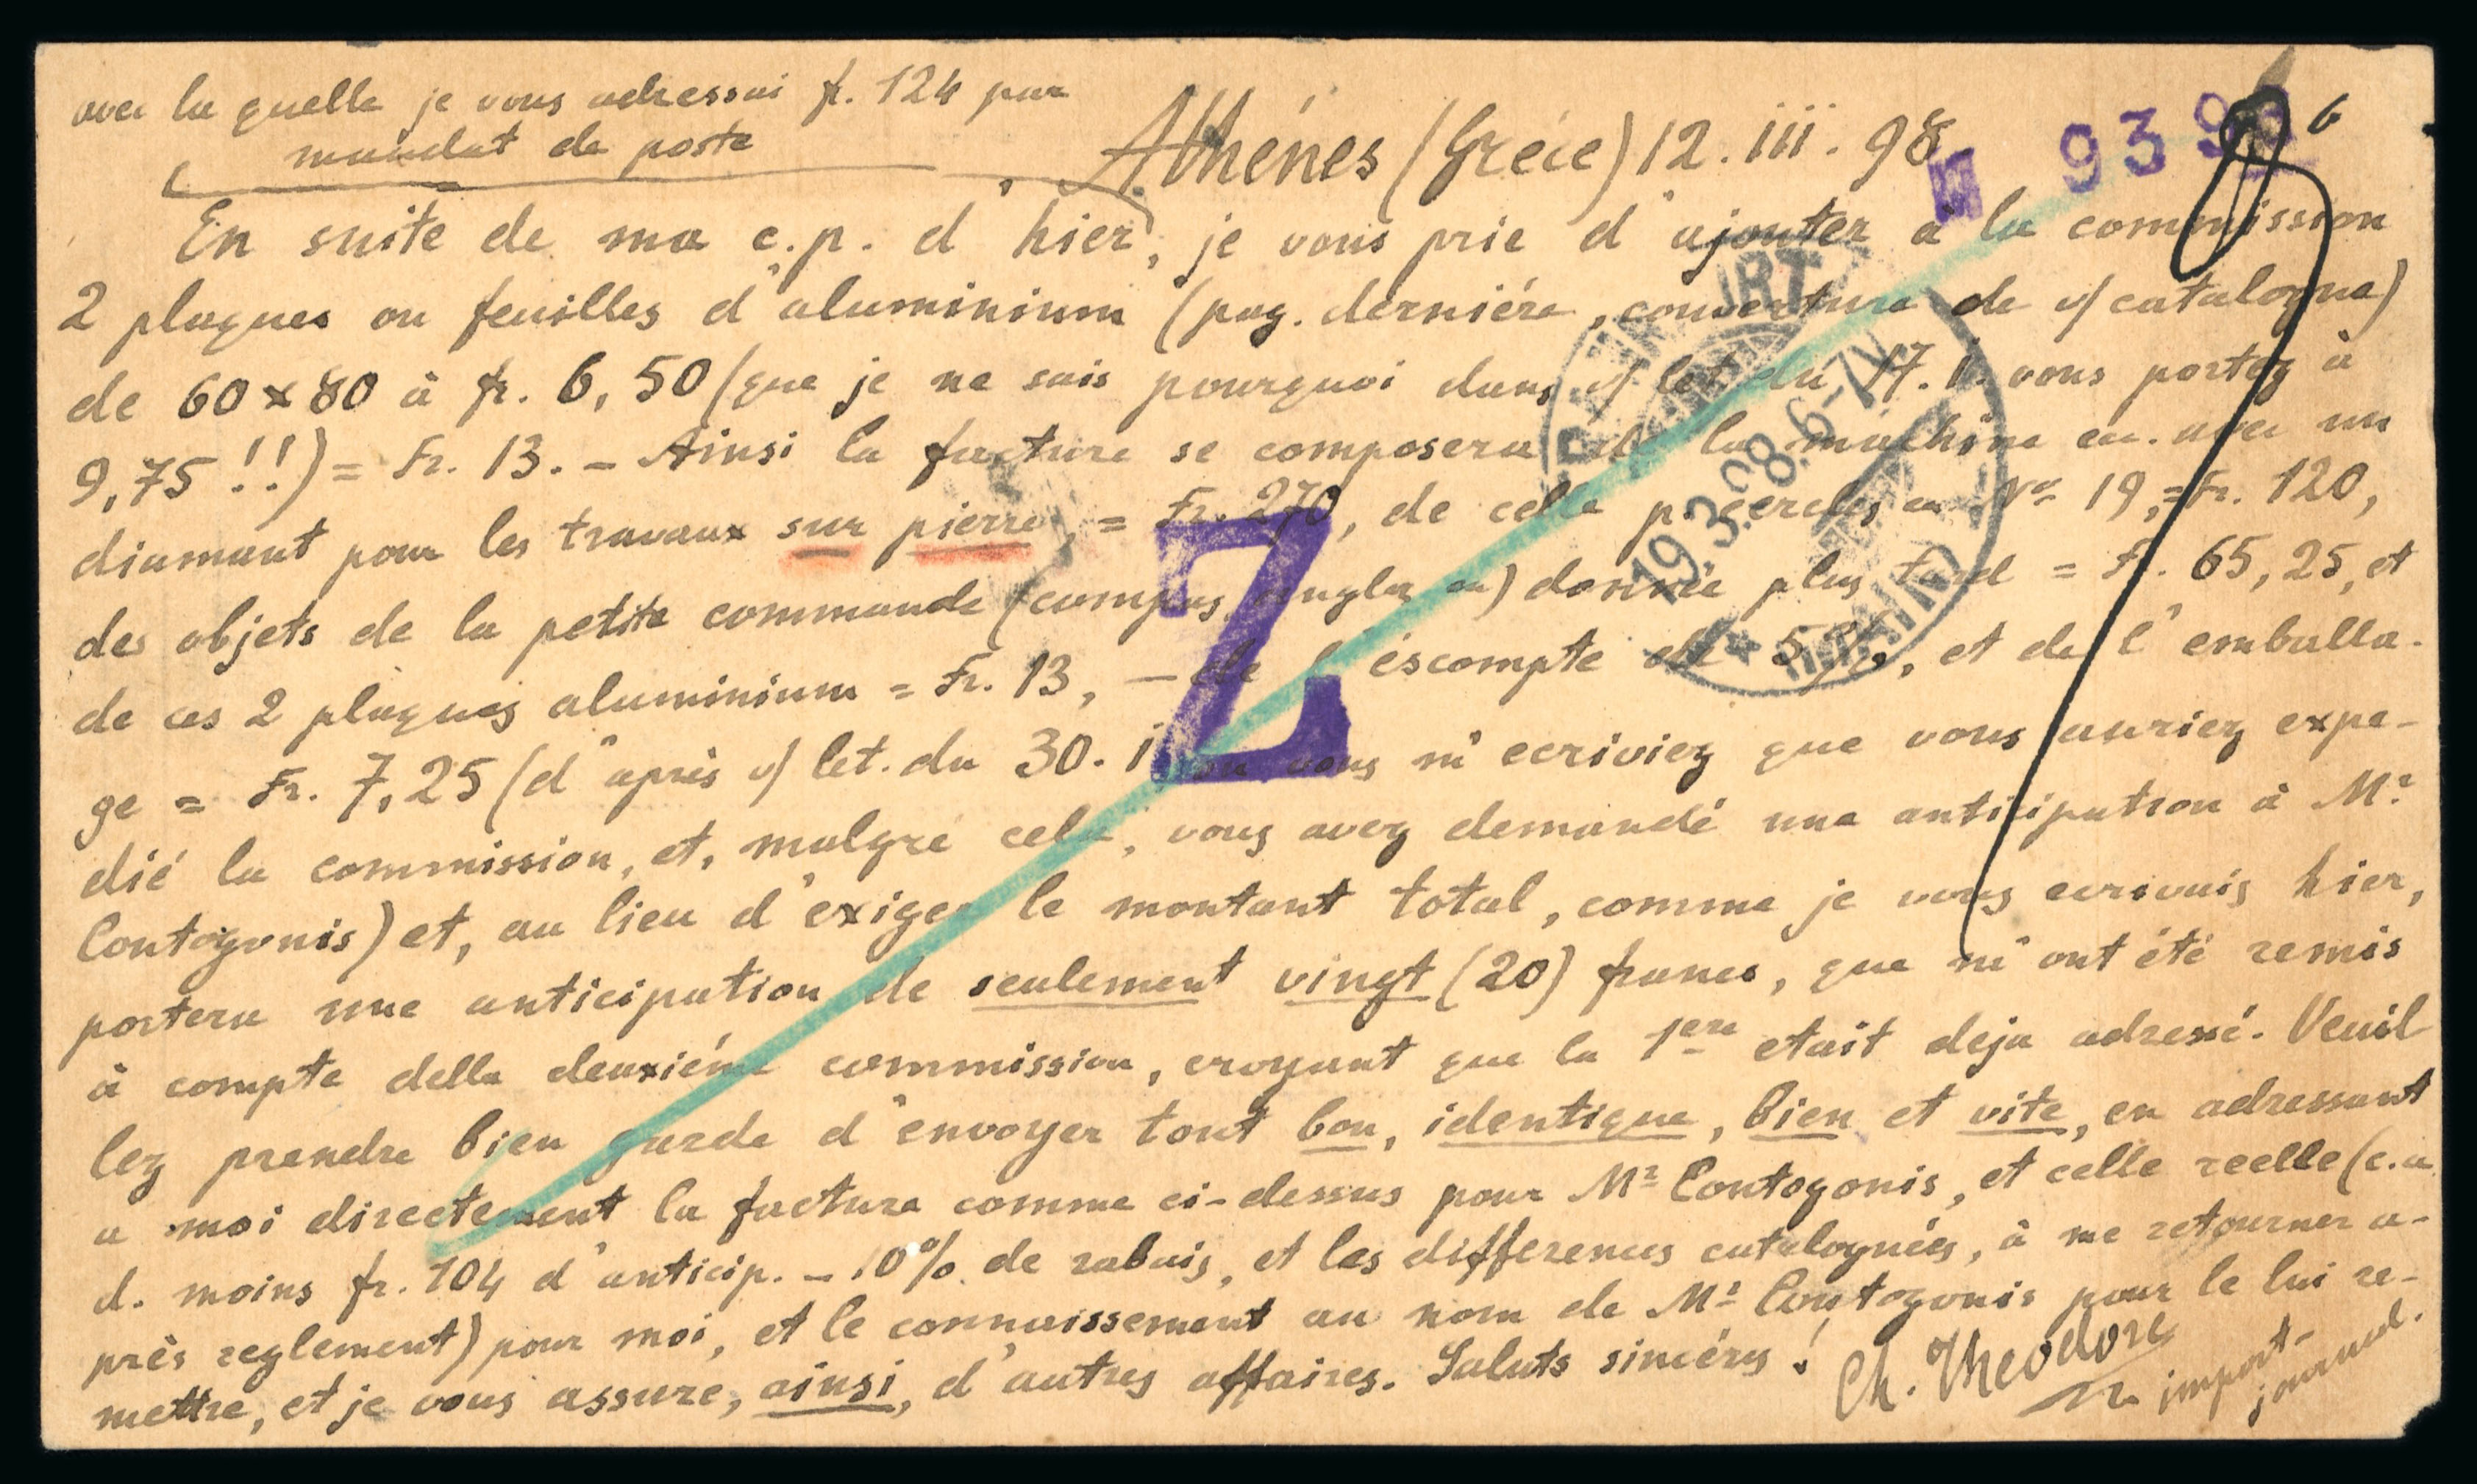 avec la quelle je vous adressai fr. 124 par
mandat de poste
Athénes (Gréce) 12. iii. 98
939
6
En suite de ma c.p. d'hier, je vous prie d'ajouter à la commission
2 plaques ou feuilles d'aluminium (pag. derniére, couverture de v/ catalogue)
de 60 x 80 à fr. 6,50 (que je ne sais pourquoi dans v/ let. du 17. i. vous portez à
9,75!!) = Fr. 13. - Ainsi la facture se composera de la machine avec un
diamant pour les travaux sur pierre, = Fr. 270, de celle p. cercles No 19, = Fr. 120,
des objets de la petite commande (compas, donnée plus tard = Fr. 65,25, et
de ces 2 plaques aluminium = Fr. 13, - de l'éscompte de 5%, et de l'emballa-
ge = Fr. 7,25 (d'aprés v/ let. du 30. i vous m'ecriviez que vous auriez expe-
dié la commission, et, malgré cela, vous avez demandé une anticipation à Mr
Contogonis) et, au lieu d'exiger le montant total, comme je vous ecrivais hier,
portera une anticipation de seulement vingt (20) francs, que m'ont été remis
à compte della deuxiéme commission, croyant que la 1ere etait deja adressé. Veuil
lez prendre bien garde d'envoyer tout bon, identique, bien et vite, en adressant
a moi directement la facture comme ci-dessus pour Mr Contogonis, et celle reelle (c.a
d. moins fr. 104 d'anticip. - 10% de rabais, et les differences cataloguées, à me retourner a-
près reglement) pour moi, et le connaissement au nom de Mr Contogonis pour le lui re-
mettre, et je vous assure, ainsi, d'autres affaires. Saluts sincérés!
Ch. Theodore
import-
journal.
Z
FRANKFURT
19.3.98.6-7N
(MAIN)